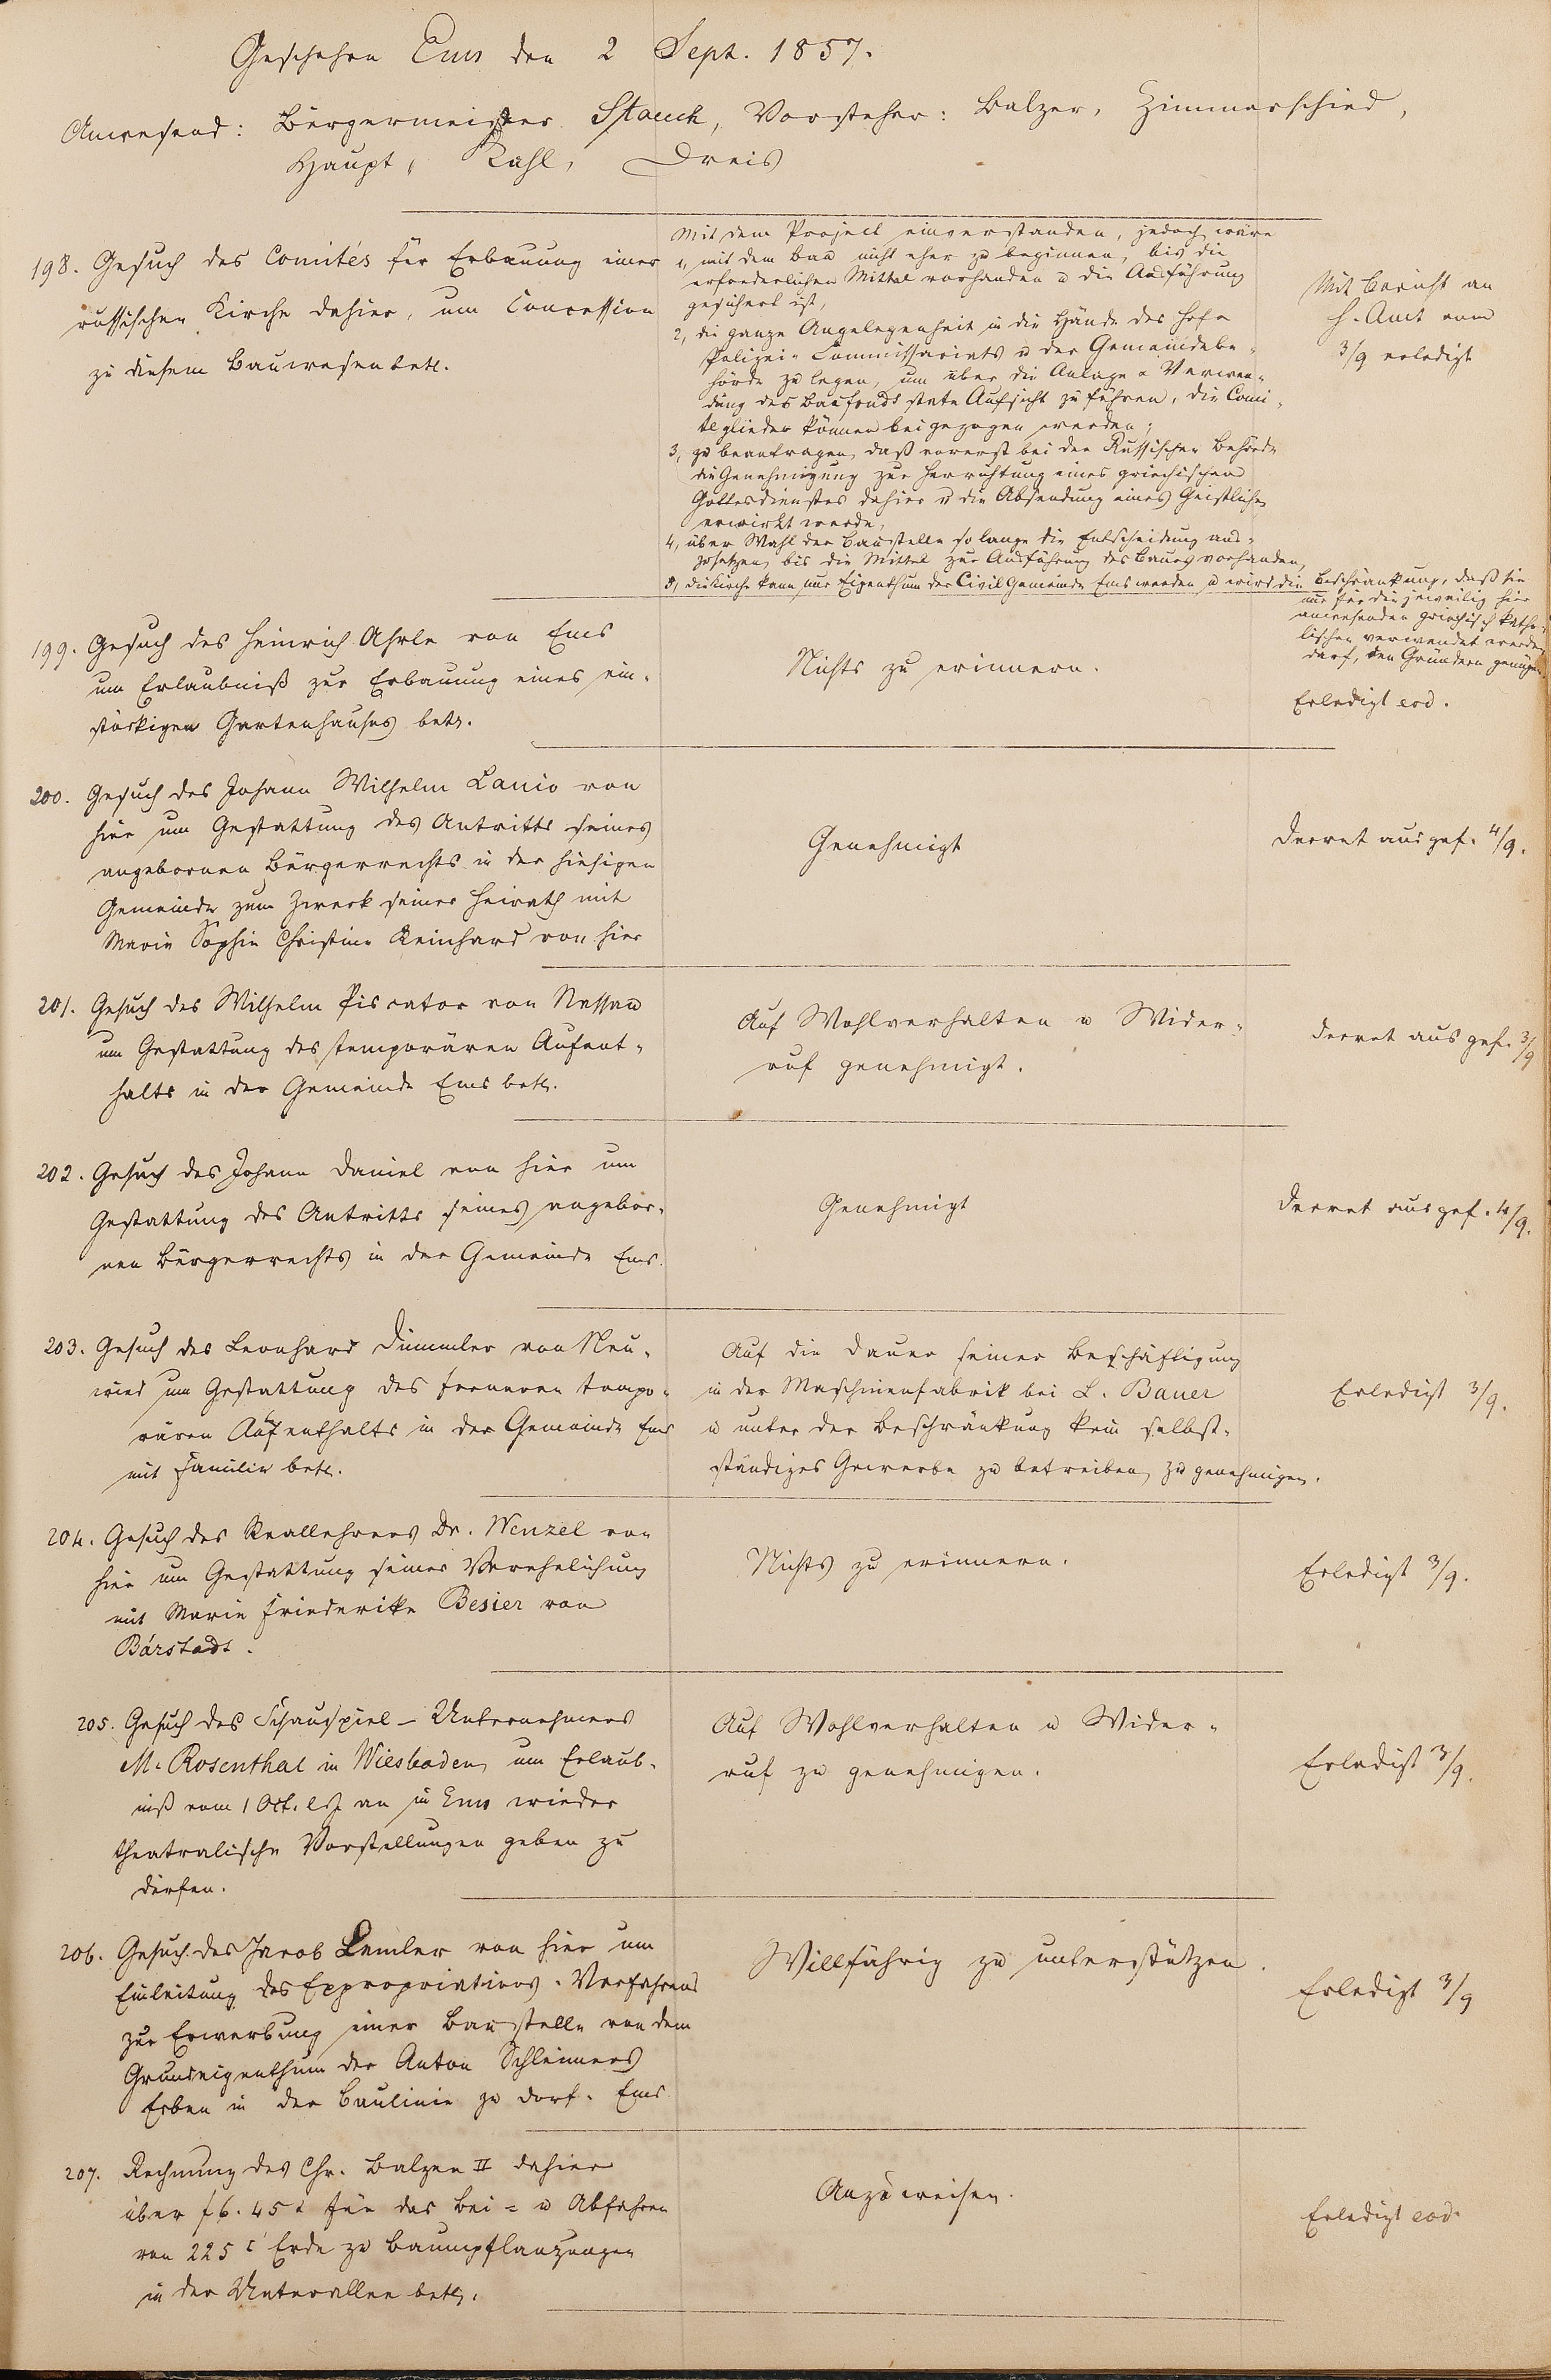 Geschehen Ems den 2 Sept. 1857.
Anwesend: Bürgermeister Stauch, Vorsteher: Balzer, Zimmerschied,
Haupt, Kahl, Dreis
198. Gesuch des Comités für Erbauung einer
russischen Kirche dahier, um Concession
zu diesem Bauwesen betr.
Mit dem Project einverstanden, jedoch wäre
1, mit dem Bau nicht eher zu beginnen, bis die
erforderlichen Mittel vorhanden u die Ausführung
gesichert ist,
2, die ganze Angelegenheit in die Hände des Hrzl.
Polizei-Commissariats u der Gemeindebe-
hörde zu legen, um über die Anlage u Verwen-
dung des Baufonds stete Aufsicht zu führen, die Comi-
téglieder können beigezogen werden;
3, zu beantragen, daß vorerst bei der Russischen Behörde
die Genehmigung zur Herrichtung eines griechischen
Gottesdienstes dahier u die Absendung eines Geistlichen
erwirkt werde,
4, über Wahl der Baustelle so lange die Entscheidung aus-
zusetzen, bis die Mittel zur Ausführung des Baues vorhanden,
5, die Kirche kann nur Eigenthum der Civilgemeinde Ems werden u wird die Beschränkung, daß sie
nur für die jeweilig hier
anwesenden griechisch katho-
lischen verwendet werden
darf, den Gründern genügen.
Mit Bericht an
H. Amt vom
3/9 erledigt
199. Gesuch des Heinrich Ahrle von Ems
um Erlaubniß zur Erbauung eines ein-
stöckigen Gartenhauses betr.
Nichts zu erinnern.
Erledigt eod.
200. Gesuch des Johann Wilhelm Lanio von
hier um Gestattung des Antritts seines
angebornen Bürgerrechts in der hiesigen
Gemeinde zum Zweck seiner Heirath mit
Marie Sophie Christine Reinhard von hier
Genehmigt
Decret ausgef. 4/9.
201. Gesuch des Wilhelm Piscator von Nassau
um Gestattung des temporären Aufent-
halts in der Gemeinde Ems betr.
Auf Wohlverhalten u Wider-
ruf genehmigt.
Decret ausgef. 3/9
202. Gesuch des Johann Daniel von hier um
Gestattung des Antritts seines angebor-
nen Bürgerrechts in der Gemeinde Ems.
Genehmigt
Decret ausgef. 4/9.
203. Gesuch des Leonhard Dümmler von Neu-
wied um Gestattung des ferneren tempo-
rären Aufenthalts in der Gemeinde Ems
mit Familie betr.
Auf die Dauer seiner Beschäftigung
in der Maschinenfabrik bei L. Bauer
u unter der Beschränkung kein selbst-
ständiges Gewerbe zu betreiben, zu genehmigen.
Erledigt 3/9.
204. Gesuch des Reallehrers Dr. Wenzel von
hier um Gestattung seiner Verehelichung
mit Marie Friederike Besier von
Bärstadt.
Nichts zu erinnern.
Erledigt 3/9.
205. Gesuch des Schauspiel-Unternehmers
M. Rosenthal in Wiesbaden, um Erlaub-
niß vom 1 Oct. l. J. an in Ems wieder
theatralische Vorstellungen geben zu
dürfen.
Auf Wohlverhalten u Wider-
ruf zu genehmigen.
Erledigt 3/9.
206. Gesuch des Jacob Lemler von hier um
Einleitung des Expropriations-Verfahrens
zur Erwerbung einer Baustelle von dem
Grundeigenthum der Anton Schleimers
Erben in der Baulinie zu Dorf-Ems
Willfährig zu unterstützen.
Erledigt 3/9
207. Rechnung des Chr. Balzer II dahier
über f 6. 45 x für das Bei- u Abfahren
von 225 c Erde zu Baumpflanzungen
in der Unterallee betr.
Anzuweisen.
Erledigt eod.